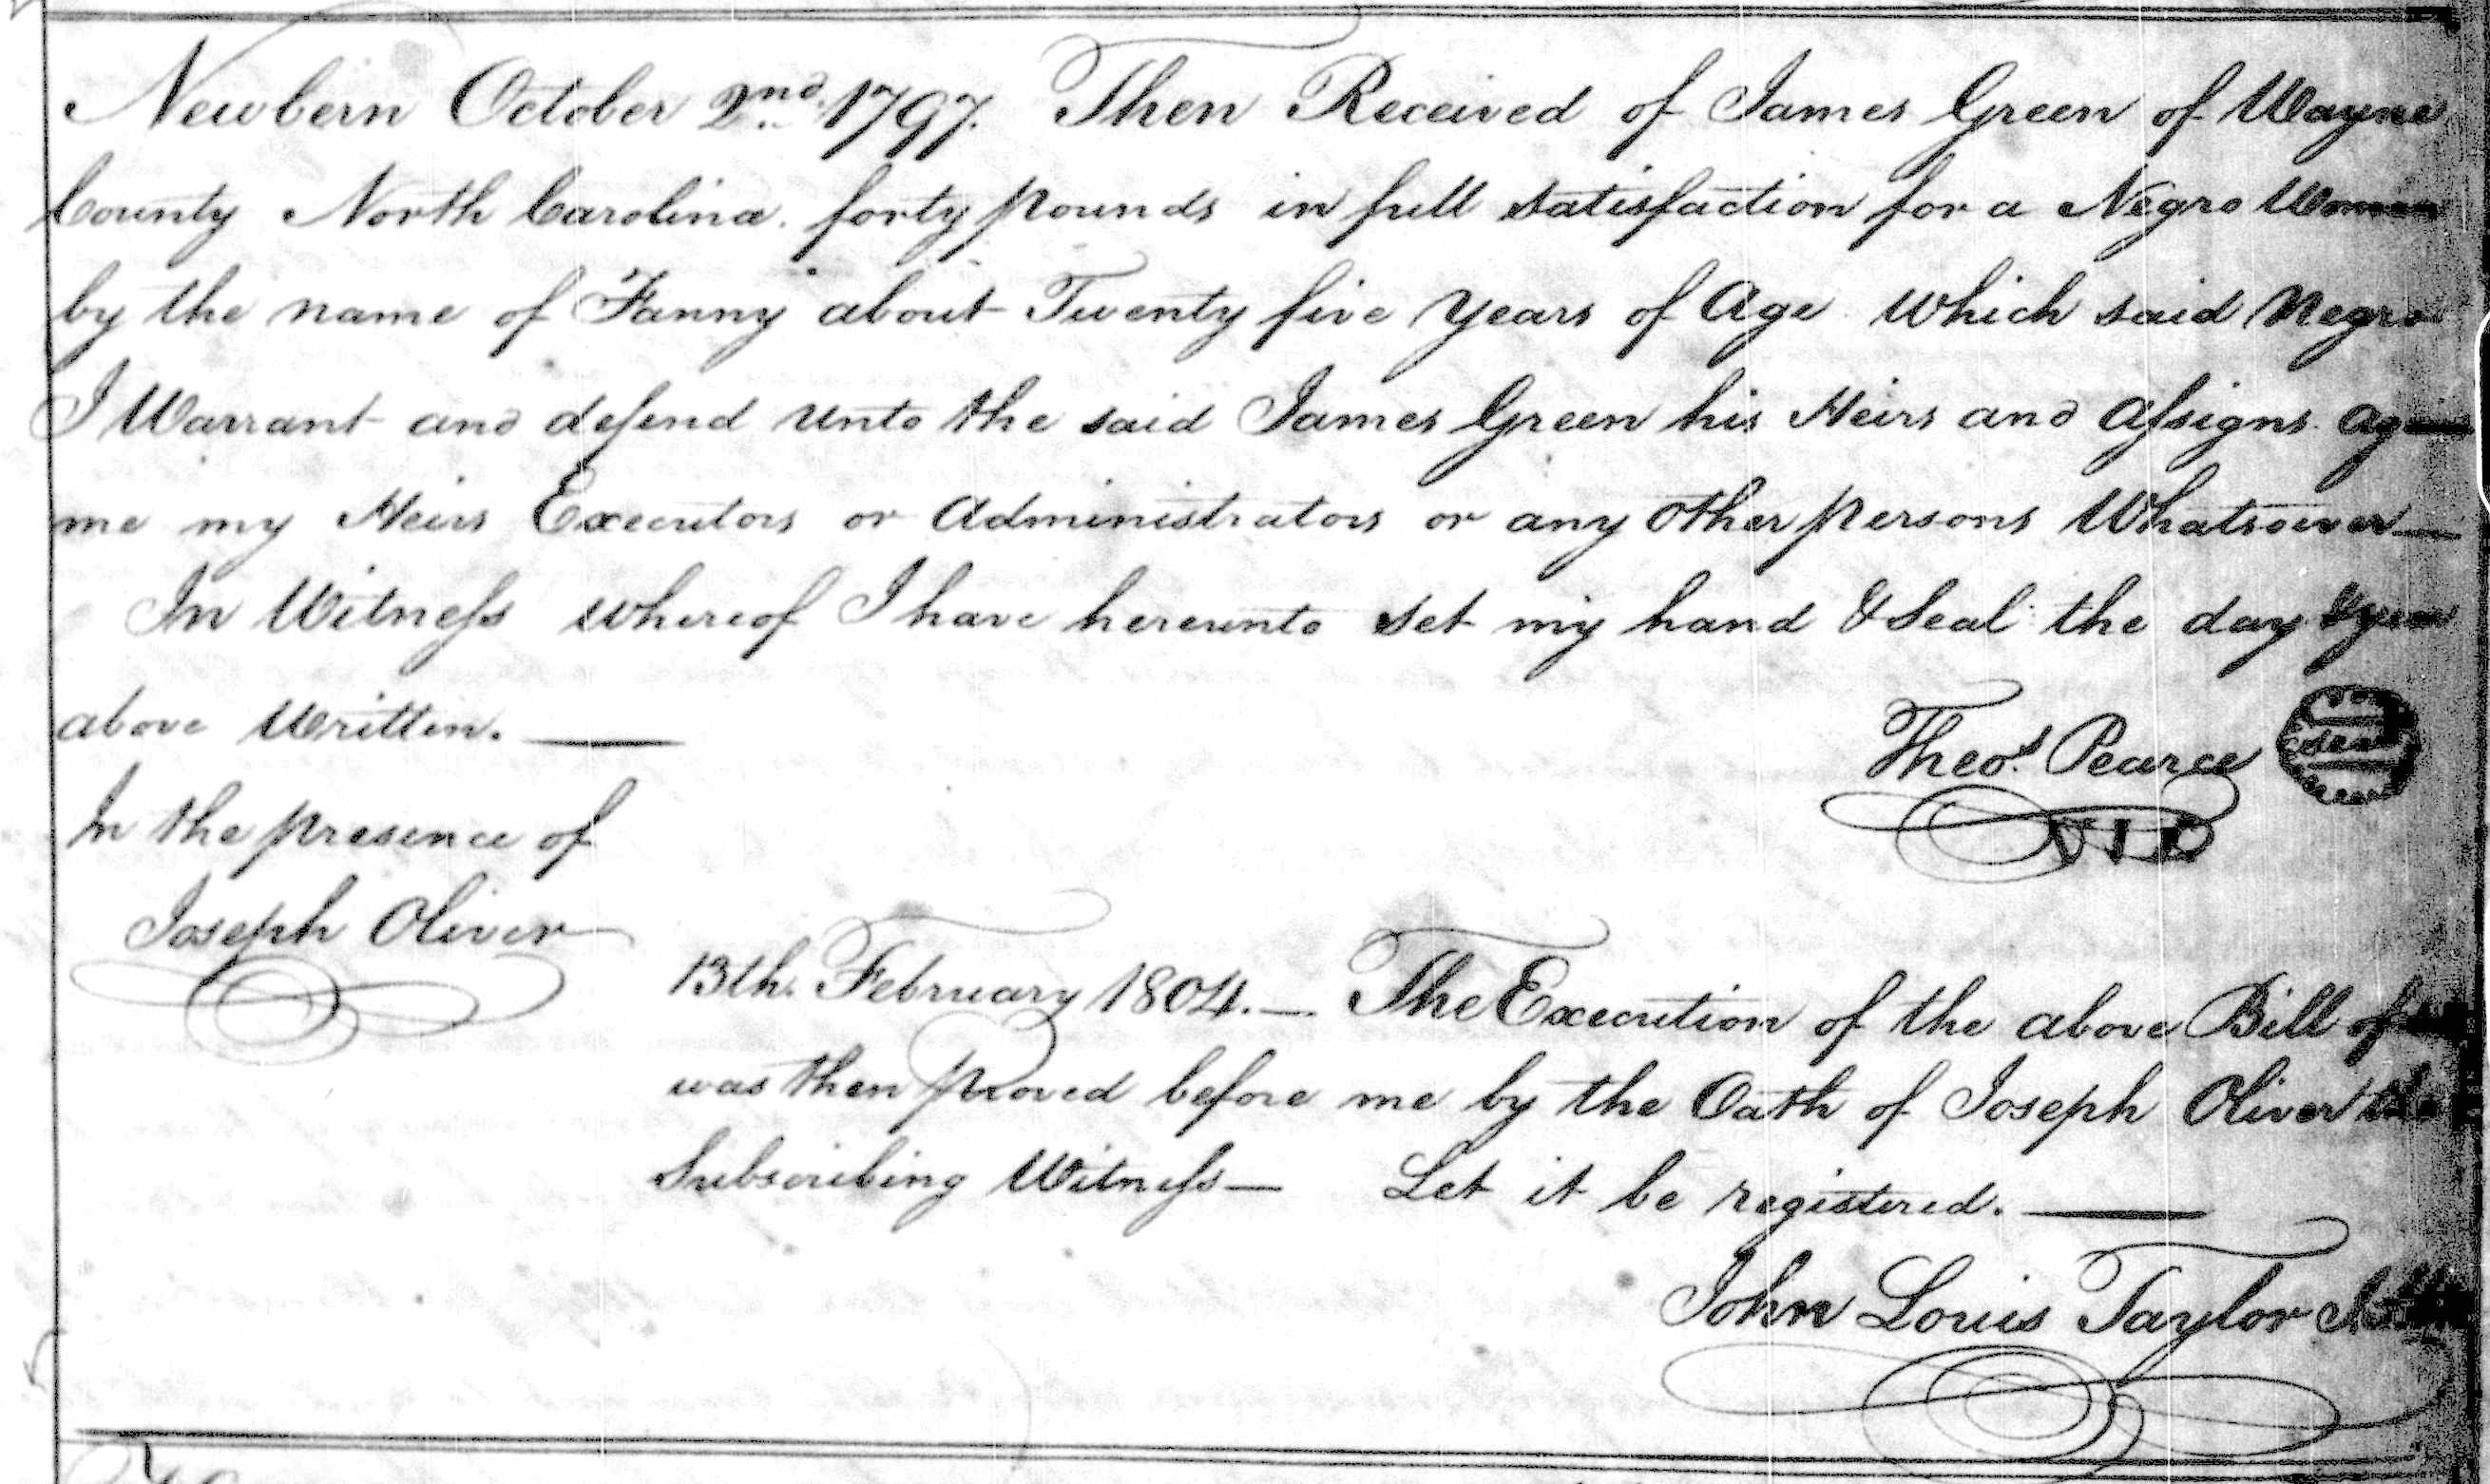 Newbern October 2nd. 1797. Then Received of James Green of Wayne
County North Carolina. forty pounds in full satisfaction for a Negro Woman
by the name of Fanny about Twenty five Years of Age which said Negro
I Warrant and defend unto the said James Green his Heirs and Aſsigns
me my Heirs Executors or Administrators or any other persons Whatsoever—
In Witneſs whereof I have hereunto set my hand & Seal the day & year
above Written. —
Theos. Pearce
seal
In the presence of
Joseph Oliver
13th. February 1804. — The Execution of the above Bill of
was then proved before me by the Oath of Joseph Oliver the
Subscribing Witneſs— Let it be registered. —
John Louis Taylor